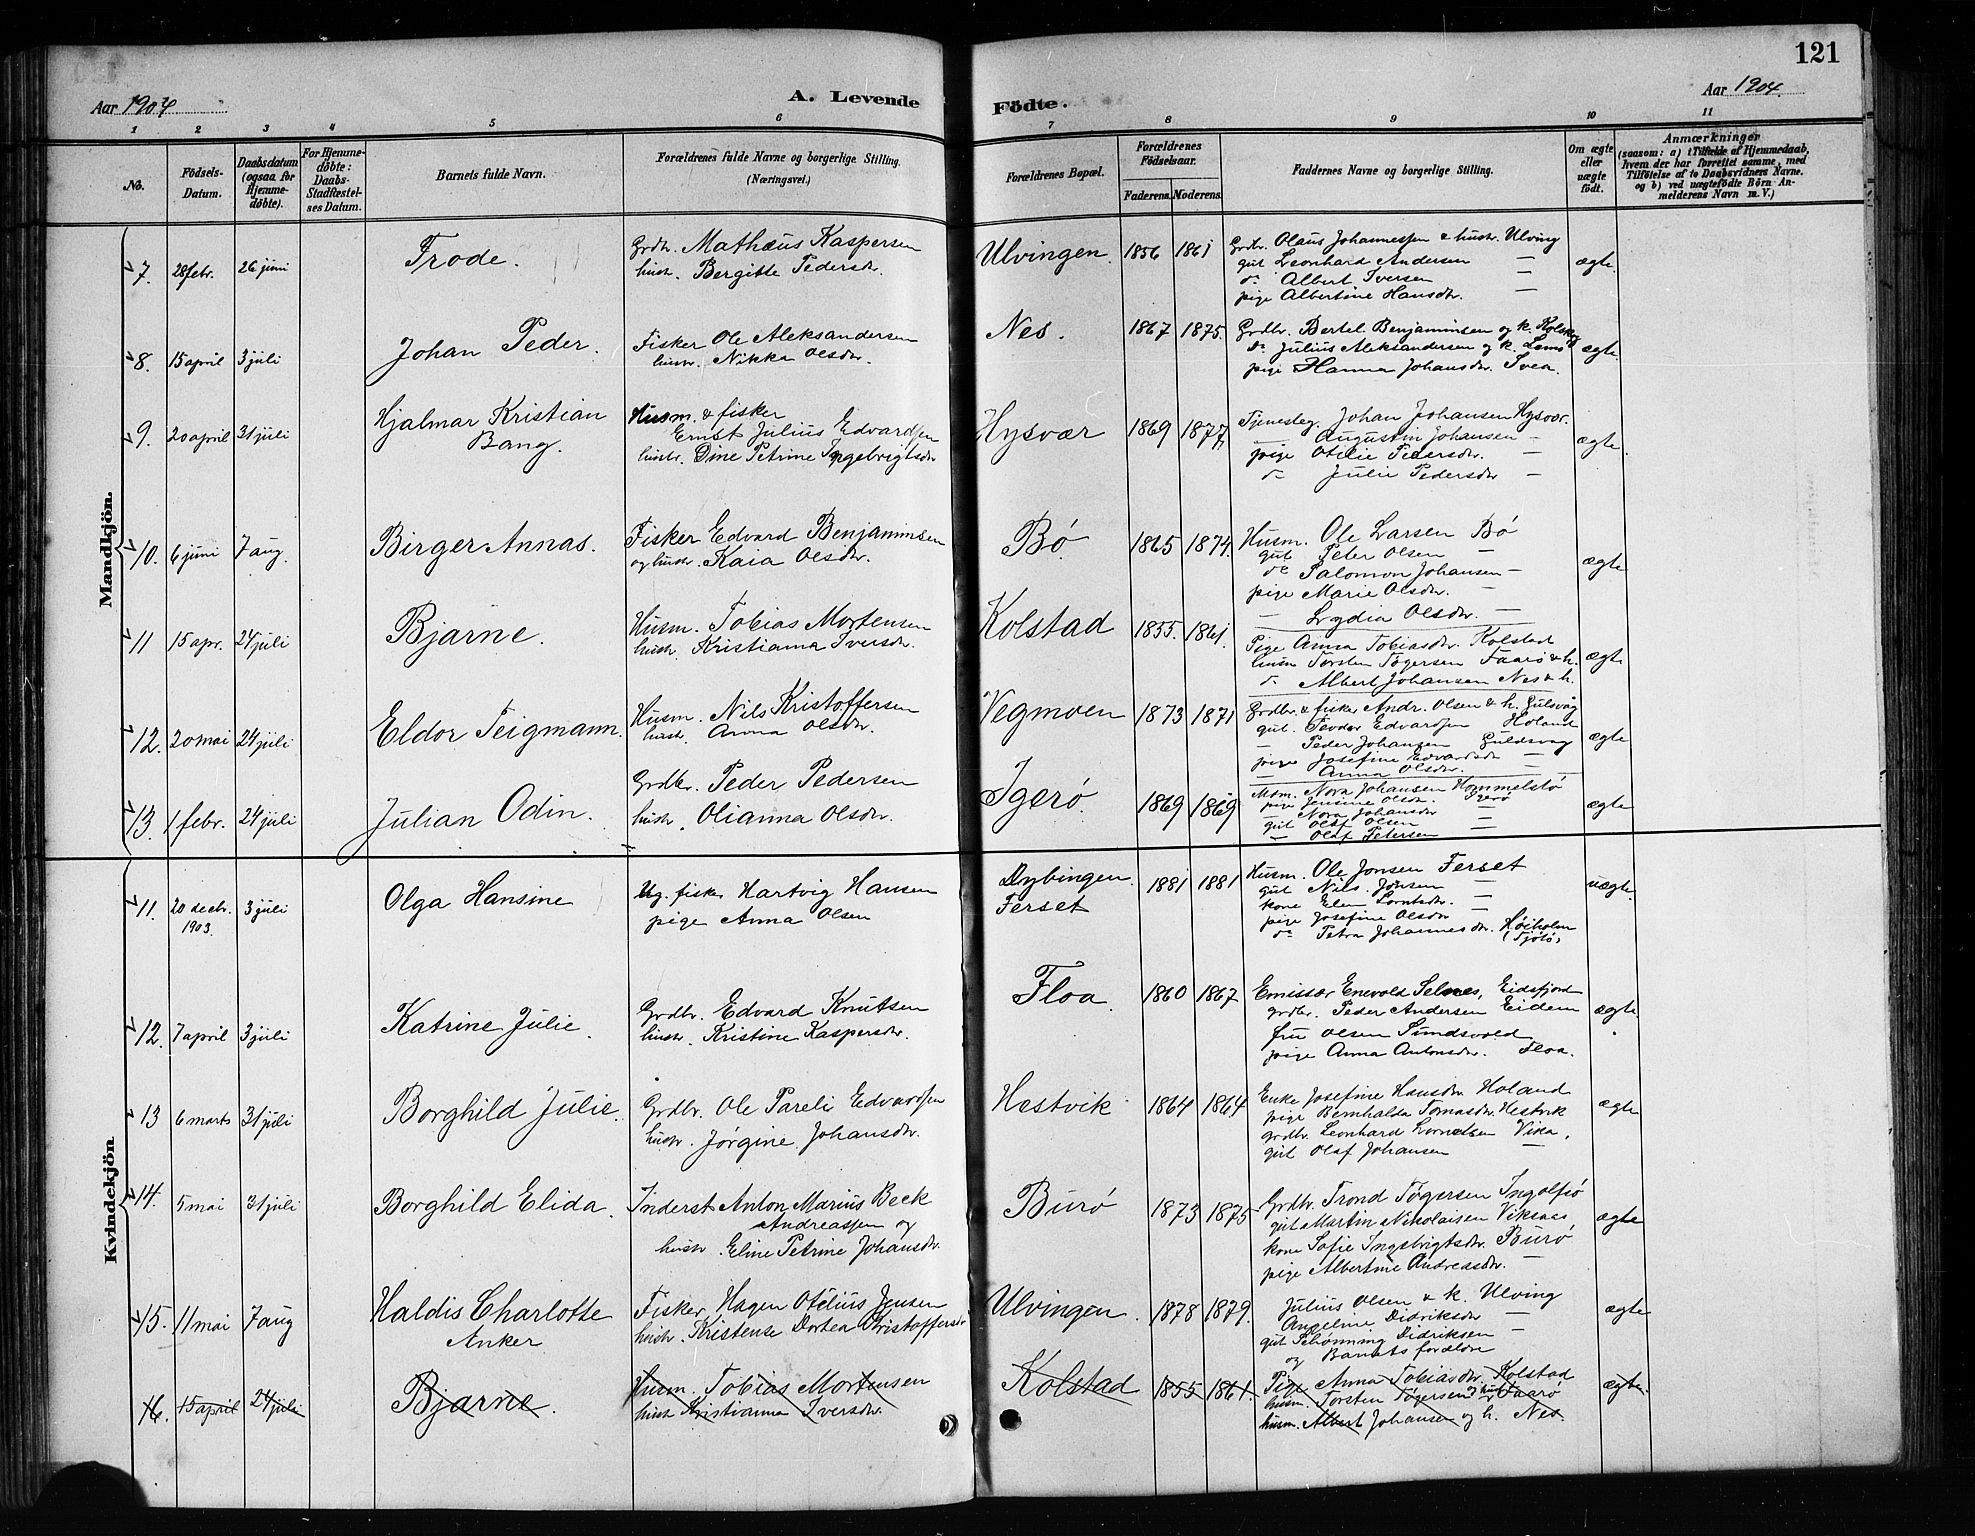 121
Aar 1904
A. Levende Födte.
Aar 1904.
1 2 3 4 5 6 7 8 9 10 11
No.
Födsels-Datum.
Daabsdatum (ogsaa for Hjemme-döbte).
For Hjemme-döbte: Daabs-Stadfæstel-ses Datum.
Barnets fulde Navn.
Forældrenes fulde Navne og borgerlige Stilling. (Næringsvei.)
Forældrenes Bopæl.
Forældrenes Födselsaar.
Faderens. Moderens.
Faddernes Navne og borgerlige Stilling.
Om ægte eller uægte födt.
Anmærkninger
(saasom: a) i Tilfælde af Hjemmedaab, hvem der har forrettet samme, med Tilföielse af to Daabsvidners Navne. og b) ved uægtefödte Börn An-melderens Navn m.V.)
Mandkjön.
7. 28 febr. 26 juni Frode. Grdbr. Mathæus Kaspersen
hustr. Bergitte Pedersdr.
Ulvingen. 1856 1861 Grdbr. Olaus Johannessen & hustr. Ulving
gut Leonhard Andersen —
do Albert Iversen —
pige Albertine Hansdr. —
ægte.
8. 15 april 3 juli Johan Peder. Fisker Ole Aleksandersen
hustr. Nikka Olsdr.
Nes. 1867 1875. Grdbr. Bertel Benjaminsen og k.
do Julius Aleksandersen og k.
pige Hanna Johansdr.
ægte
9. 20 april 31 juli Hjalmar Kristian
Bang.
Husm. & fisker
Ernst Julius Edvardsen
hustr. Dine Petrine Ingebrigtsdr
Hysvær 1869 1877 Tjenesteg. Johan Johansen Hysvær.
— Augustin Johansen —
pige Otelie Pedersdr. —
do Julie Pedersdr —
ægte.
10. 6 juni 7 aug. Birger Annas. Fisker Edvard Benjaminsen
og hustr. Kaia Olsdr.
Bø. 1865 1874. Husm. Ole Larsen Bø
gut Peter Olsen —
do Salomon Johansen —
pige Marie Olsdr. —
— Lydia Olsdr. —
ægte
11 15 apr. 24 juli Bjarne. Husm. Tobias Mortensen
hustr. Kristianna Iversdr.
Kolstad 1855. 1861. Pige Anna Tobiasdr. Kolstad
husm Torsten Tøgersen Faarø & h.
do Albert Johansen Nes & h.
ægte
12. 20 mai 24 juli Eldor Teigmann. Husm. Nils Kristoffersen
hustr. Anna Olsdr.
Vegmoen 1873 1871 Grdbr. & fisker Andr. Olsen & h. Gulsvåg
gut. Teodor Edvardsen Holand
— Peder Johansen Guldsvag
pige Josefine Edvardsdr —
— Anna Olsdr. —
ægte
13. 1 febr. 24 juli Julian Odin. Grdbr. Peder Pedersen
hustr. Olianna Olsdr.
Igerø 1869 1869 Nora Johansen Hommelstø
pige Jensine Olsdr. Igerø
— Nora Johansdr —
gut Olaf Olsen —
— Olaf Petersen
ægte
Kvindekjön
11. 20 decbr. 1903. 3 juli Olga Hansine Ug. fisker Hartvig Hansen
pige Anna Olsen
Dybingen.
Ferset
1881 1881 Husm. Ole Jonsen Ferset
gut Nils Jonsen —
kone Elen —
pige Josefine Olsdr —
do Petra Johannesdr. Høiholm
(Tjøtø)
uægte.
12. 7 april 3 juli Katrine Julie. Grdbr. Edvard Knutsen
hustr. Kristine Kaspersdr.
Floa. 1860 1867 Emissær Enevold Selnes, Eidsfjord
grdbr. Peder Andersen Eidem
fru Olsen Sundsvold
pige Anna Antonsdr. Floa.
ægte
13 6 marts 31 juli Borghild Julie. Grdbr. Ole Pareli Edvardsen
hustr. Jørgine Johansdr.
Hestvik 1864 1864 Enke Josefine Hansdr. Holand
pige Bernhalda Tomasdr. Hestvik
grdbr. Leonhard Lorntsen Vika,
gut Olaf Johansen —
ægte
14. 5 mai 31 juli Borghild Elida. Inderst Anton Marius Beck
Andreassen og
hustr. Eline Petrine Johansdr.
Burø 1873 1875 Grdbr. Trond Tøgersen Ingolfsø
gut Martin Nikolaisen Viksaas,
kone Sofie Ingebrigtsdr. Burø
pige Albertine Andreasdr. —
ægte
15. 11 mai 7 aug Haldis Charlotte
Anker
Fisker Hagen Otelius Jensen
hustr. Kristense Dortea Kristoffersdr
Ulvingen. 1878 1879. Julius Olsen & k. Ulving
Angeline Didriksdr —
gut Schønning Didriksen —
og Barnets forældre
ægte
16. 15 april 24 juli Bjarne. Husm. Tobias Mortensen
hustr Kristianna Iversdr.
Kolstad 1855 1861. Pige Anna Tobiasdr. Kolstad
husm. Torsten Tøgersen og hustr Faarø
husm. Albert Johansen og h. Nes.
ægte